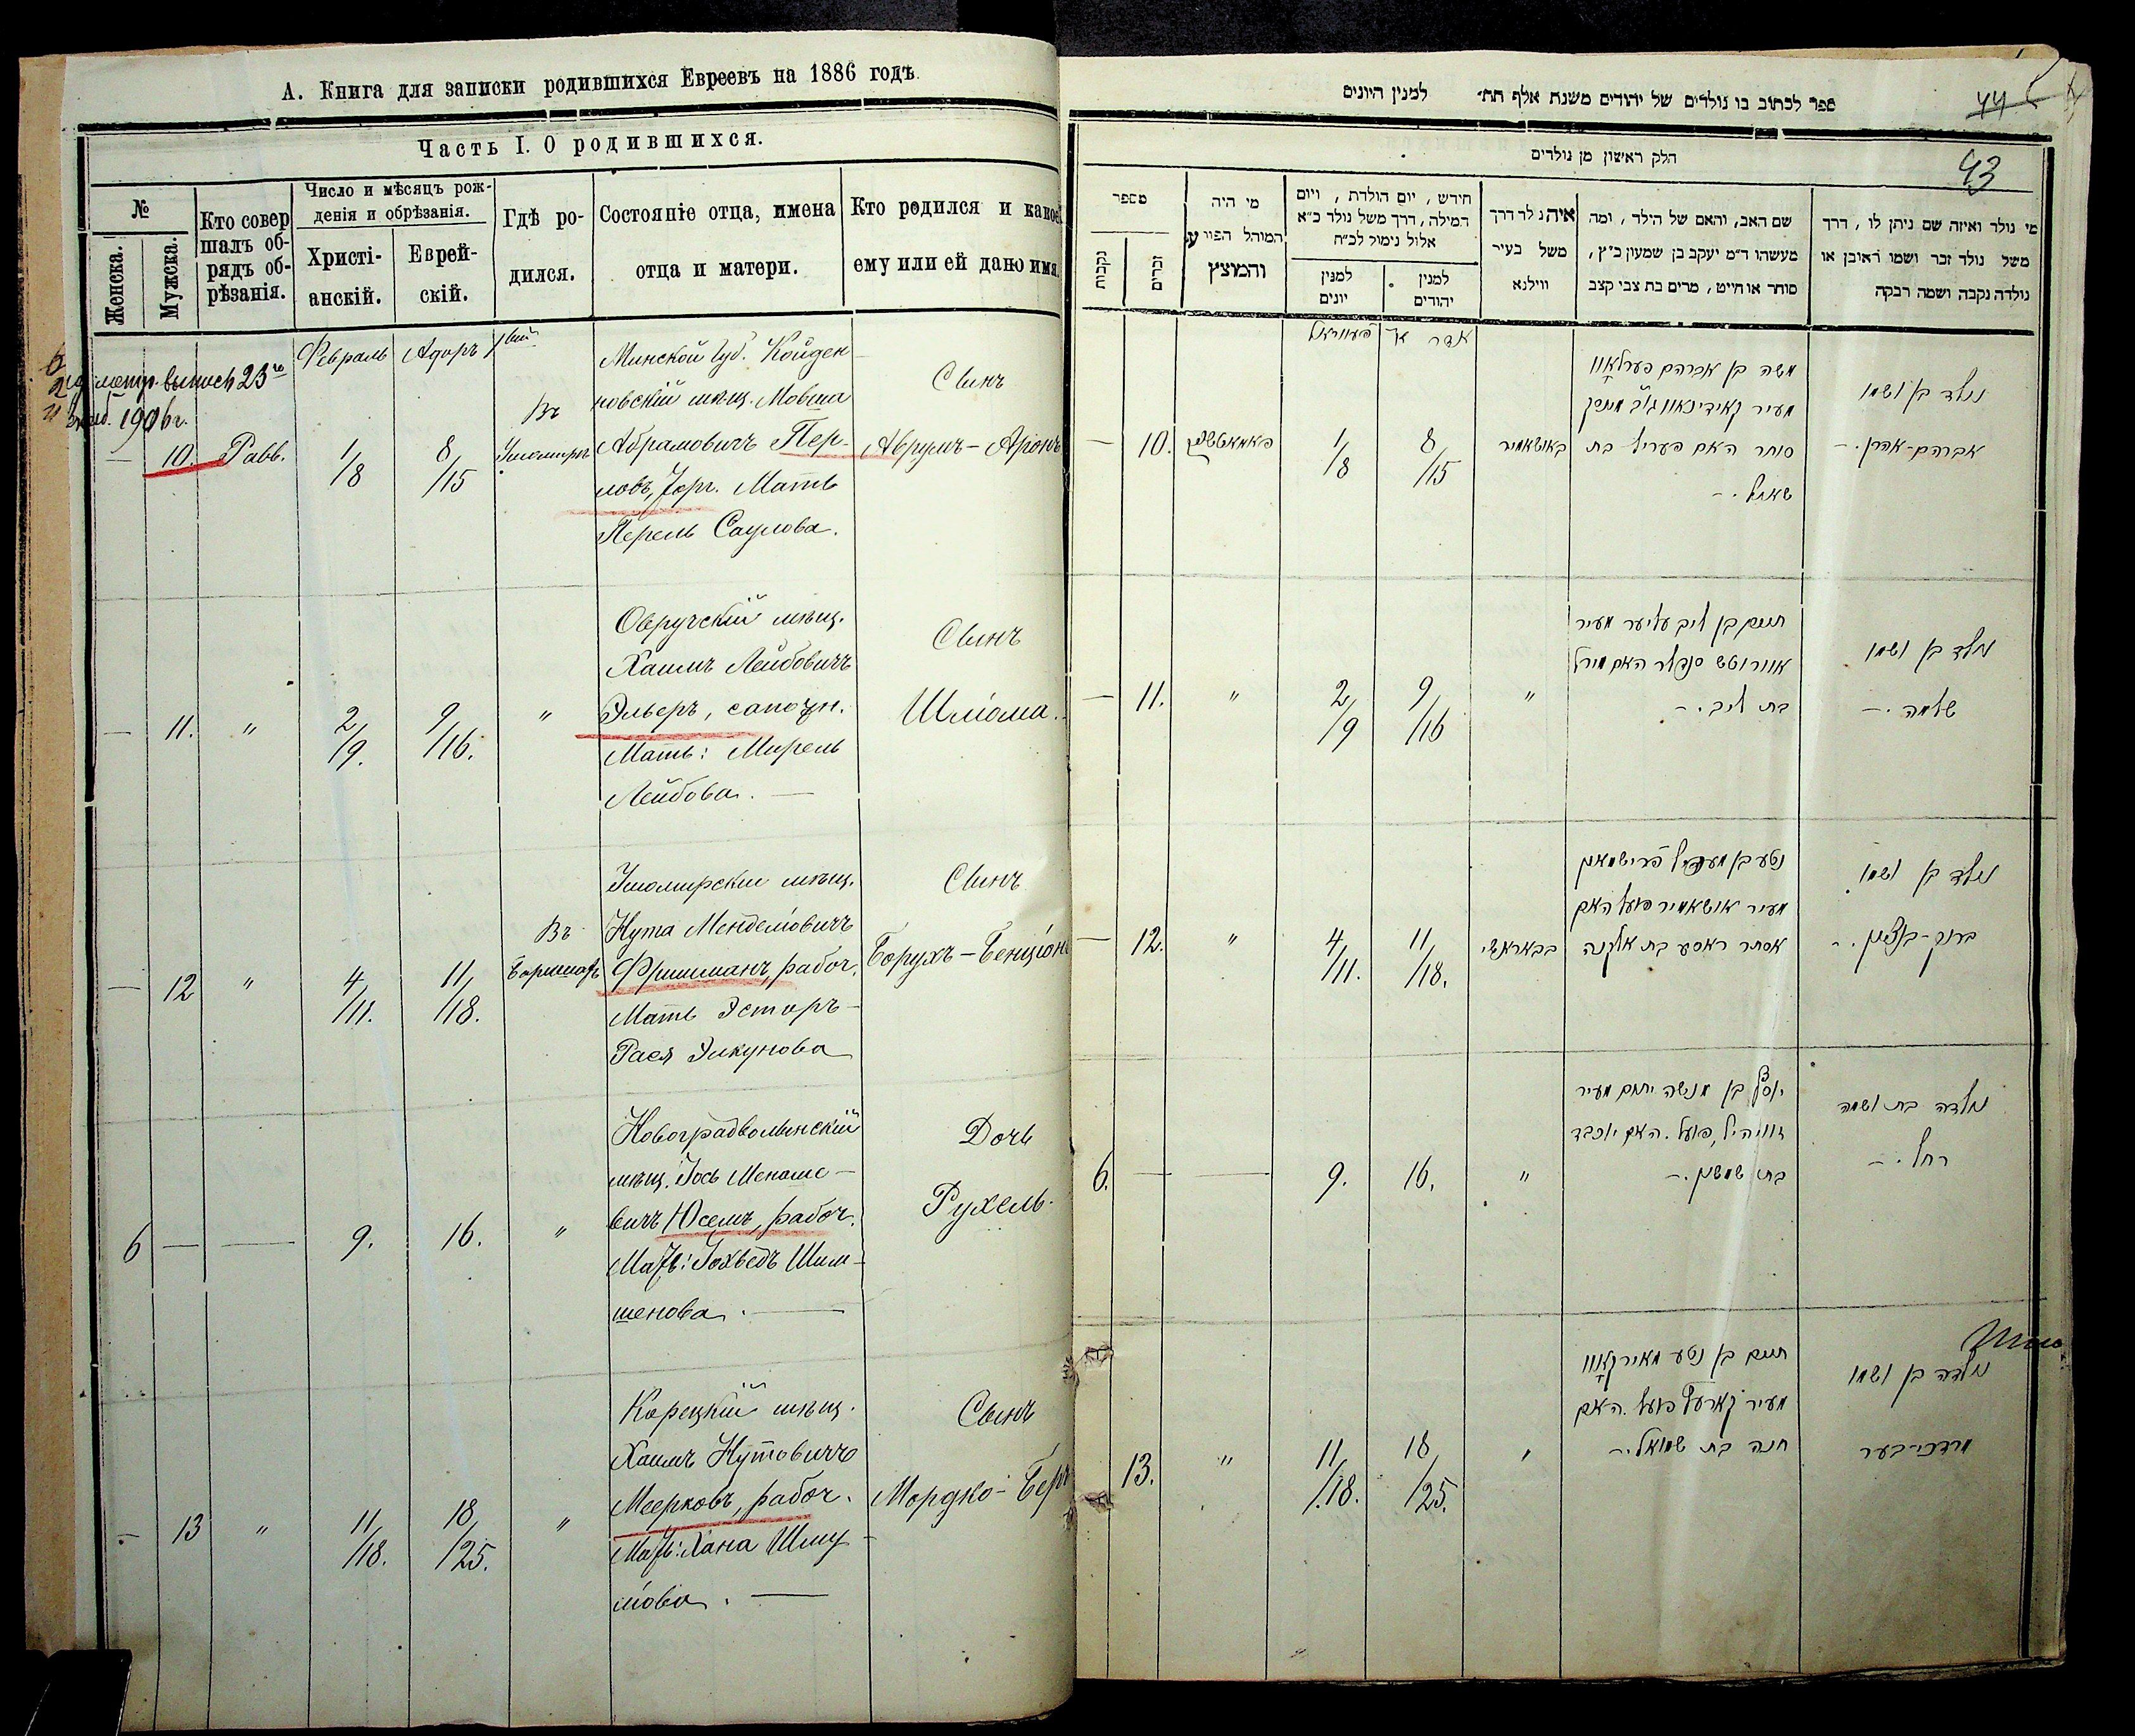 А. Книга для записки родившихся Евреевъ на 1886 годъ.
Часть I. О родившихся.
№
Женска.
Мужска.
Кто совершалъ обрядъ обрѣзанія.
Число и мѣсяцъ рожденія и обрѣзанія.
Христіанскій.
Еврейскій.
Гдѣ родился.
Состояніе отца, имена отца и матери.
Кто родился и какое ему или ей дано имя.
метр. выпись 23го
1906 г.
Февраль Адоръ 1вый
Минской губ. Койден-
новскій мѣщ. Мовша
Абрамовичъ Пер-
ловъ, торг. Мать
Перель Саулова.
— 10. Равв. 1/8 8/15 Въ Ушомирѣ
Сынъ
Аврумъ-Аронъ
Овручскій мѣщ.
Хаимъ Лейбовичъ
Эльверъ, сапожн.
Мать: Мирель
Лейбова. —
— 11. " 2/9. 9/16. "
Сынъ
Шліома.
Ушомирскій мѣщ.
Нута Менделіовичъ
Фришманъ, рабоч.
Мать Эстеръ-
Рася Элкунова
— 12 " 4/11. 11/18. Въ
Сынъ
Борухъ-Бенціонъ
Новоградволынскій
мѣщ. Іось Менаше-
вичъ Юсемъ, рабоч.
Мать: Іохведъ Шим-
шенова. —
6 — — 9. 16. "
Дочь
Рухель.
Корецкій мѣщ.
Хаимъ Нутовичъ
Меерковъ, рабоч.
Мать: Хана Шму-
ліова. —
— 13 " 11/18. 18/25. "
Сынъ
Мордко-Беръ
ספר לכתוב בו נולדים של יהודים משנת אלף תת׳ למנין היונים
44
43
חלק ראשון מן נולדים
מספר
נקבות
זכרים
מי היה המוהל הפורע והמוצץ
חידש, יום הולדת, ויום
המילה, דרך משל נולד כ״א
אלול נימול לכ״ח
למנין יונים
למנין יהודים
איה נלד דרך
משל בעיר
ווילנא
שם האב, והאם של הילד, ומה
מעשהו ד״מ יעקב בן שמעון כ״ץ,
סוחר או חייט, מרים בת צבי קצב
מי נולד ואיזה שם ניתן לו, דרך
משל נולד זכר ושמו ראובן או
נולדה נקבה ושמה רבקה
אדר א׳
משה בן אברהם פערלאוו
סוחר האם פעריל בת
שאול.–
— 10. 1/8 8/15 באושאמיר
נולד בן ושמו
אברהם-אהרן.–
חיים בן ליב עליער מעיר
אוורוטש סנדלר האם מירל
בת ליב.–
— 11. " 2/9 9/16 "
נולד בן ושמו
שלמה.–
נטע בן מענדיל פרישמאן
מעיר אושאמיר פועל האם
אסתר ראסע בת אלקנה
— 12. " 4/11. 11/18.
נולד בן ושמו
ברוך-בנציון.–
יוסף בן מנשה יוסם מעיר
זוויהיל, פועל. האם יוכבד
בת שמשון.–
6. — — 9. 16. "
נולדה בת ושמה
רחל.–
חיים בן נטע מאירקאוו
מעיר קארעץ פועל. האם
חנה בת שמואל.–
13. " 11/18. 18/25. "
נולדה בן ושמו
מרדכי-בער